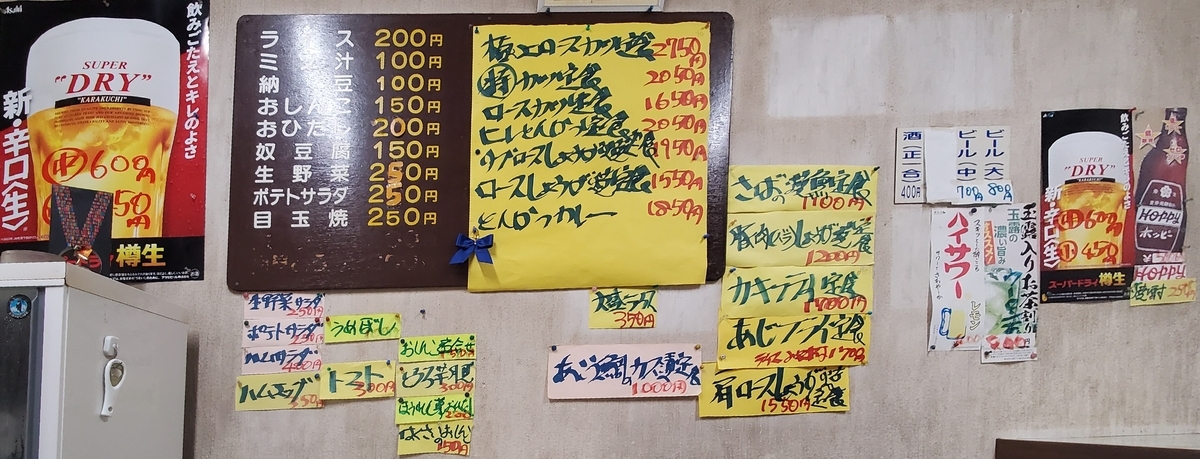 Asahi
飲みごたえとキレのよさ
SUPER
"DRY"
"KARAKUCHI"
新・辛口〈生〉
中 600円
50円
樽生
ライス 200円
ミソ汁 100円
納豆 100円
おしんこ 150円
おひたし 200円
奴豆腐 150円
生野菜 250円
ポテトサラダ 250円
目玉焼 250円
極上ロースカツ定食 2750円
特カツ定食 2050円
ロースカツ定食 1650円
ヒレとんかつ定食 2050円
1950円
ロースしょうが焼定食 1550円
とんかつカレー 1850円
生野菜サラダ 250円
ポテトサラダ 250円
ハムサラダ 400円
ハムエッグ 350円
うめぼし
トマト 300円
おしんこ盛合せ
300円
150円
大盛ライス 350円
1000円
さばの塩焼定食 1100円
豚肉しょうが焼定食 1200円
カキフライ定食 1400円
あじフライ定食
肩ロースしょうが焼定食 1550円
酒(正一合) 400円
ビール中 700円
ビール大 800円
ハイサワー
レモン
玉露の濃い旨み
玉露入りお茶割り
飲みごたえとキレのよさ
SUPER
"DRY"
新・辛口〈生〉
中 600円
小 450円
スーパードライ 樽生
HOPPY
ホッピー
HOPPY